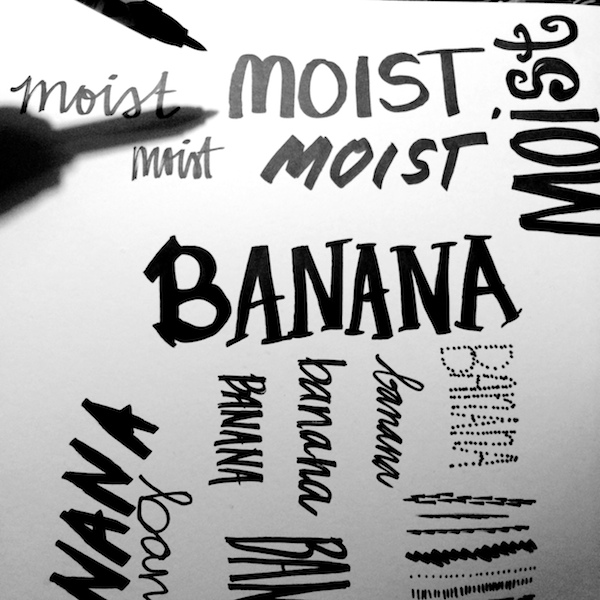 moist
MOIST
Moist
moist
MOIST
BANANA
BANANA
banana
banana
BANANA
NANA
ban
BAN
BAN